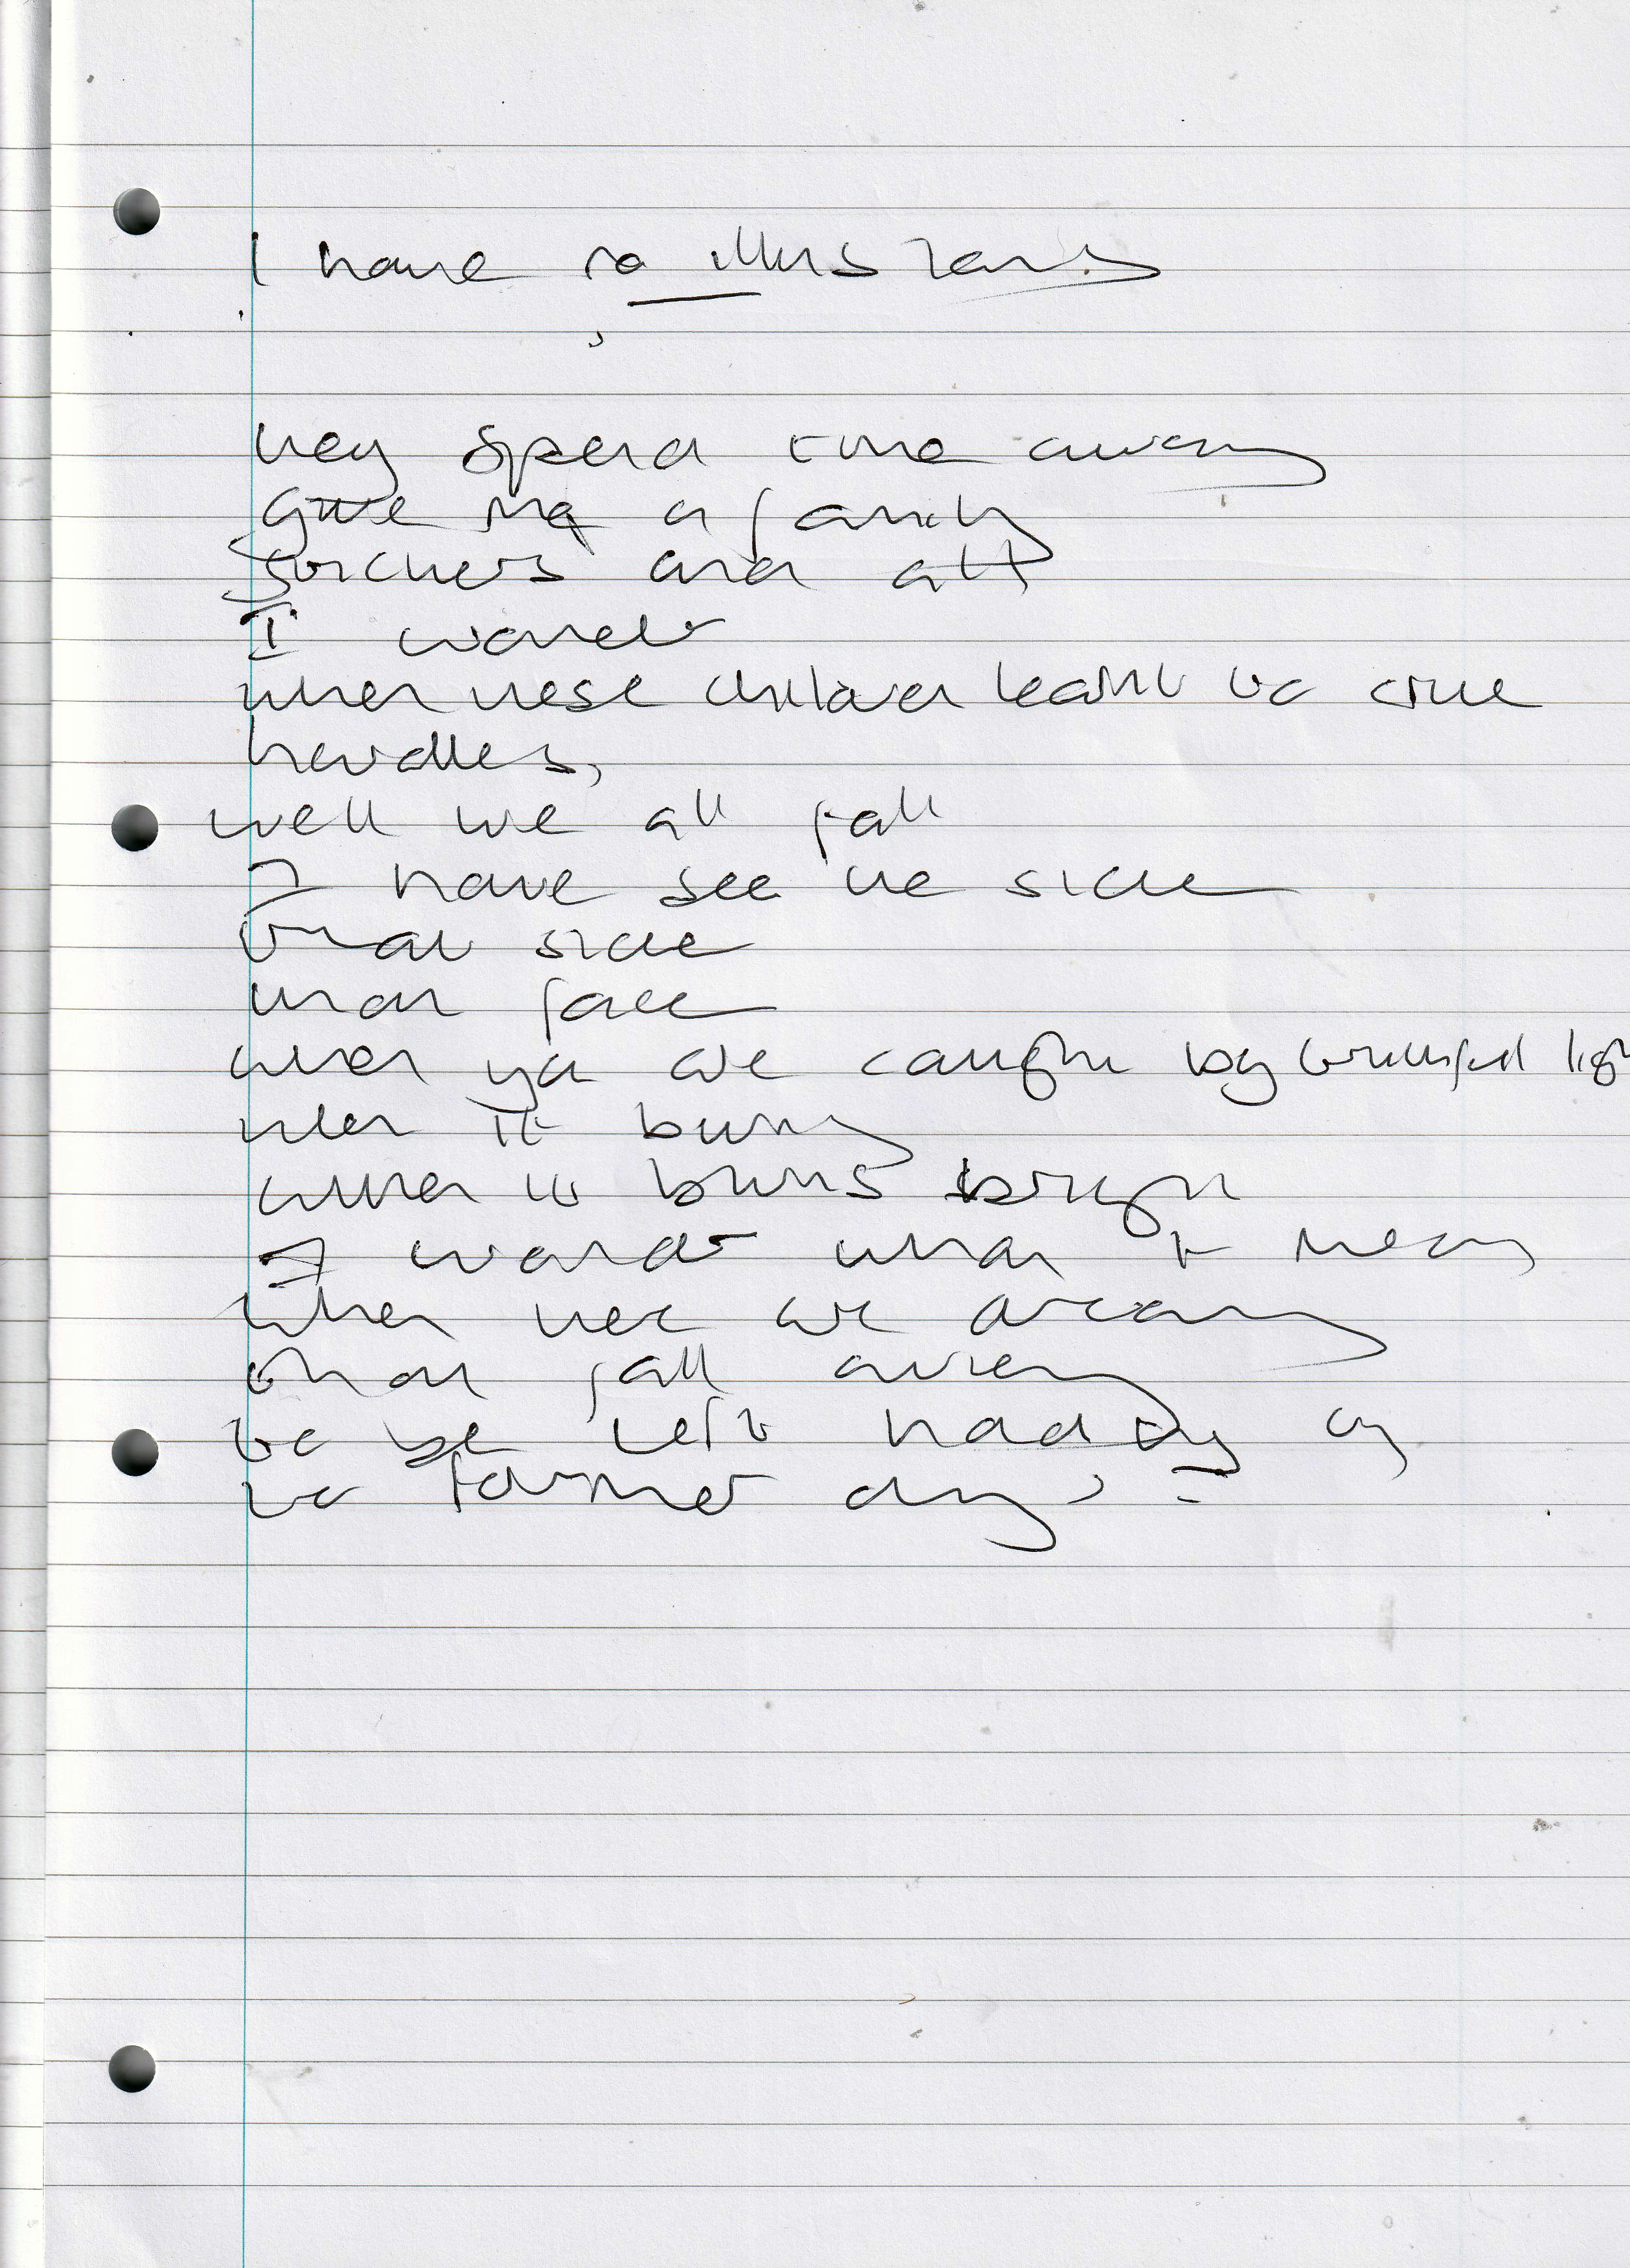 I have no illusions
they spend time away
give me a family
and all
I wonder
when these children learnt to
well we all fall
I have see the side
that side
that face
when you are caught by
when it burns
when it burns bright
I wonder what it means
when they are
that fall away
to be left
to former days